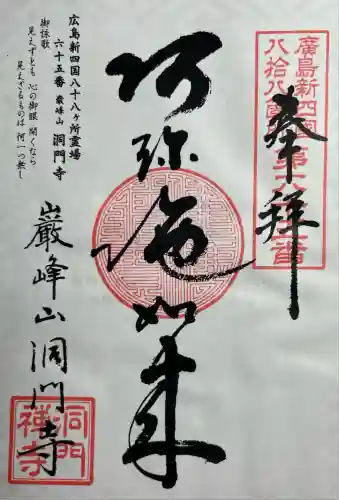 廣島新四国
八拾八ヶ所
第六十五番
奉拝
阿弥陀如来
広島新四国八十八ヶ所霊場
六十五番 巌峰山 洞門寺
御詠歌
見えずとも 心の御眼 開くなら
見えざるものは 何一つ無し
巌峰山洞門寺
洞門
禅寺